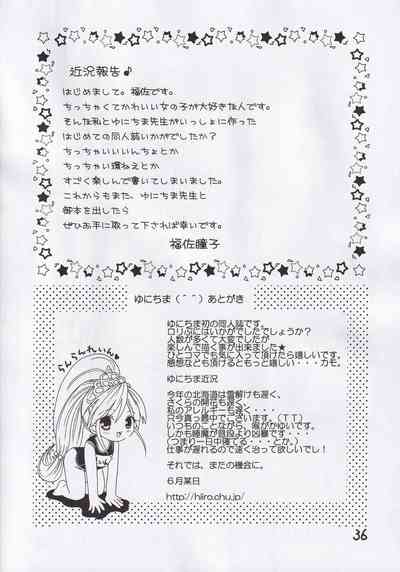 近況報告♪
はじめまして。福佐です。
ちっちゃくてかわいい女の子が大好きな人です。
そんな私とゆにちま先生がいっしょに作った
はじめての同人誌いかがでしたか？
ちっちゃいいいんちょとか
ちっちゃい環ねえとか
すごく楽しんで書いてしまいました。
これからもまた、ゆにちま先生と
御本を出したら
ぜひお手に取って下されば幸いです。
福佐瞳子
ゆにちま（＾＾）あとがき
ゆにちま初の同人誌です。
ロリぷにはいかがでしたでしょうか？
人数が多くて大変でしたが
楽しんで描く事が出来ました★
ひとコマでも気に入って頂けたら嬉しいです。
感想なども頂けるともっと嬉しい・・・カモ。
ゆにちま近況
今年の北海道は雪解けも遅く、
さくらの開花も遅く、
私のアレルギーも遅く・・・
只今真っ最中でございます。（ＴＴ）
いつものことながら、喉がかゆいです。
しかも睡魔が普段より凶暴です・・・
（つまり一日中寝てる・・・とか。）
仕事が遅れるので速く治って欲しいでし！
それでは、またの機会に。
６月某日
http://hiiro.chu.jp/
らんらんれいん♥
36